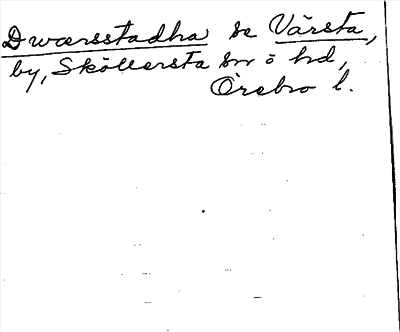 Dwærsstadha se Värsta,
by, Sköllersta sn o hd,
Örebro l.